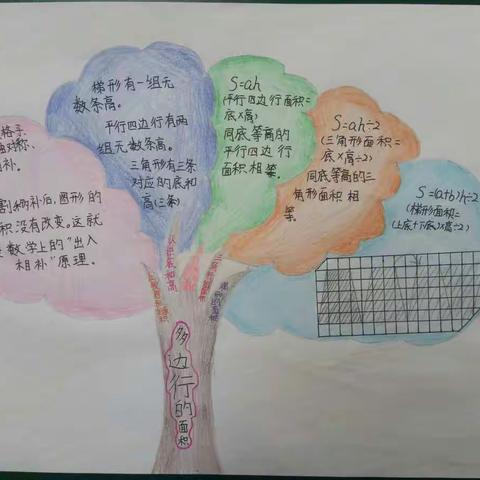 格子
对称、
补。
割和补后,图形的
积没有改变。这就
数学上的"出入
相补"原理。
梯形有一组无
数条高。
平行四边行有两
组无数条高。
三角形有三条
对应的底和
高(三条)
S=ah
(平行四边行面积=
底×高)
同底等高的
平行四边行
面积相等。
S=ah÷2
(三角形面积=
底×高÷2)
同底等高的三
角形面积相
等。
S=(a+b)h÷2
(梯形面积=
(上底+下底)×高÷2)
多边行的面积